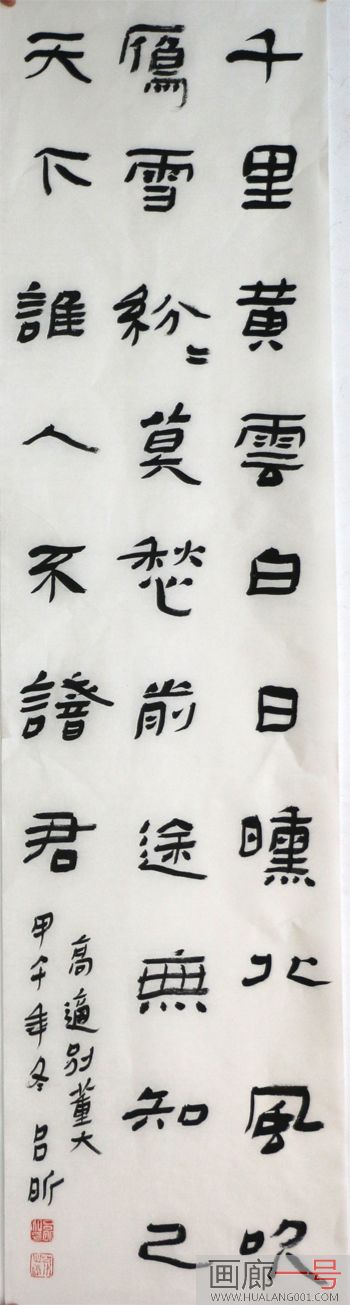 千里黄雲白日曛北風吹
鴈雪紛〻莫愁前途無知己
天下誰人不識君
高適别董大
甲午年冬吕昕
画廊一号
WWW.HUALANG001.COM